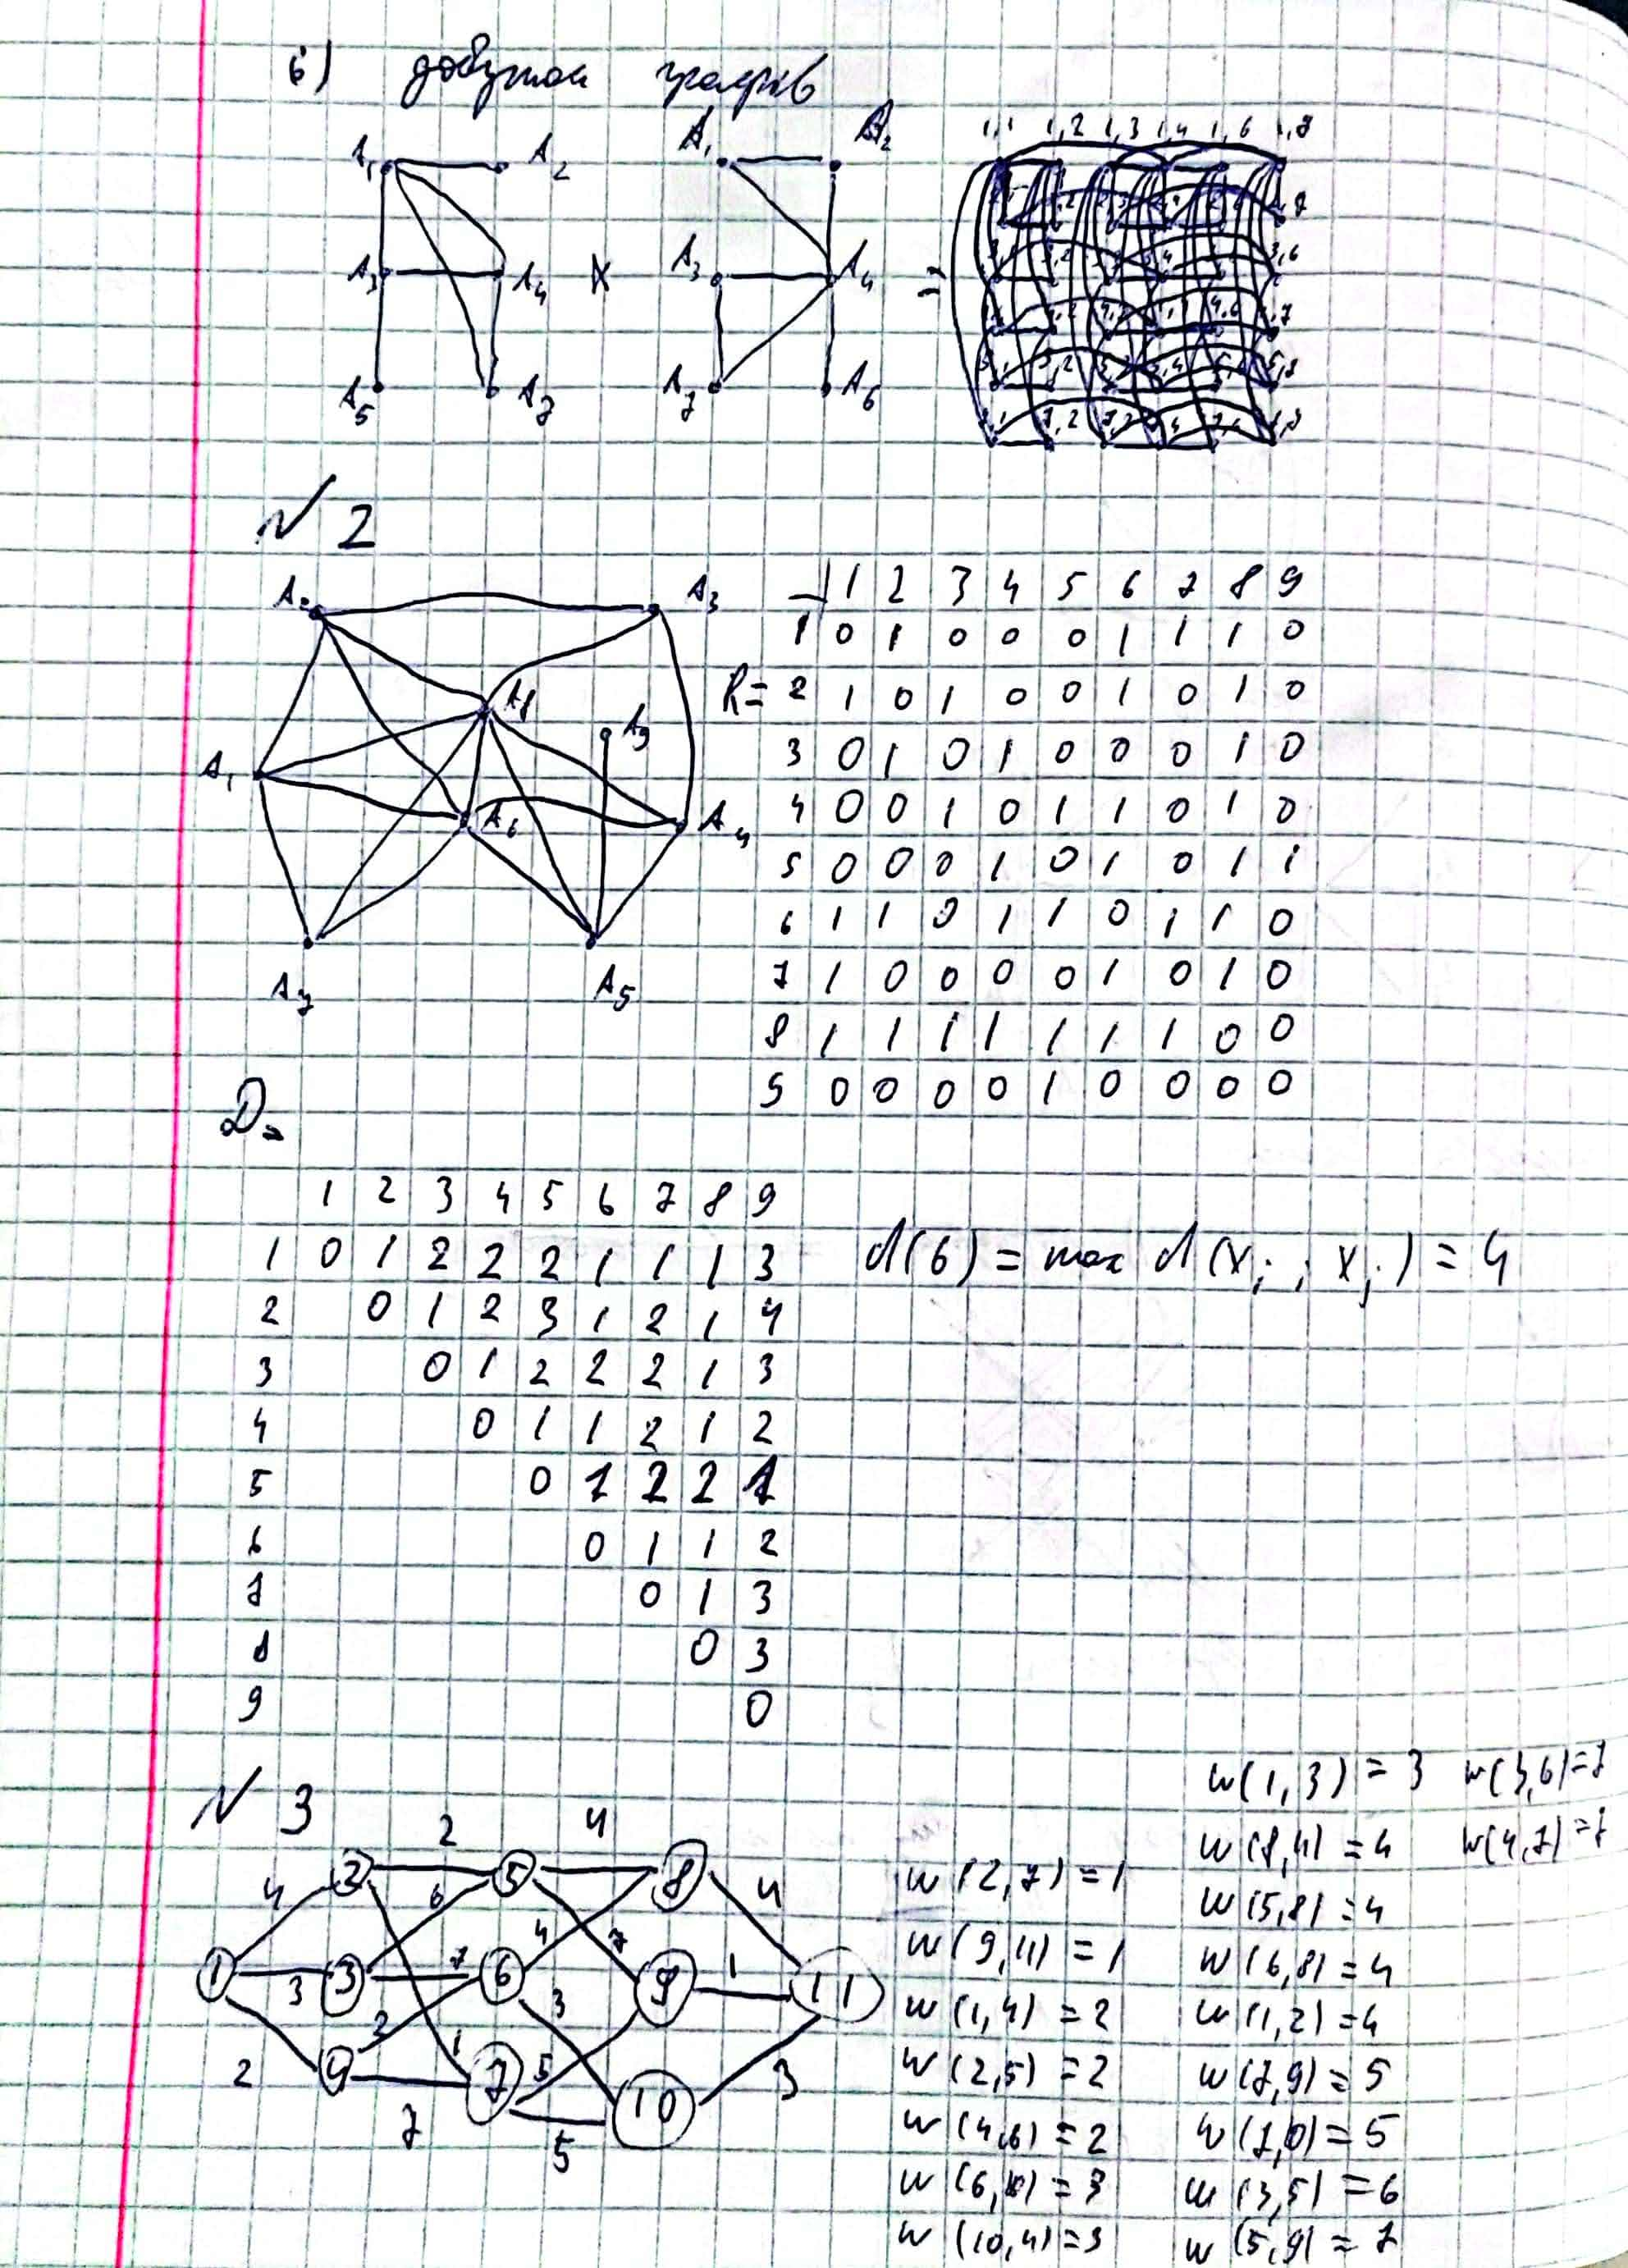 6) добуток графів
A₁ A₂ A₁ A₂ 1,1 1,2 1,3 1,4 1,6 1,7
A₃ A₄ X A₃ A₄ =
A₅ A₇ A₇ A₆
N 2
A₂ A₃
A₈ A₉
A₁ A₆ A₄
A₇ A₅
1 2 3 4 5 6 7 8 9
1 0 1 0 0 0 1 1 1 0
R= 2 1 0 1 0 0 1 0 1 0
3 0 1 0 1 0 0 0 1 0
4 0 0 1 0 1 1 0 1 0
5 0 0 0 1 0 1 0 1 1
6 1 1 0 1 1 0 1 1 0
7 1 0 0 0 0 1 0 1 0
8 1 1 1 1 1 1 1 0 0
9 0 0 0 0 1 0 0 0 0
D=
1 2 3 4 5 6 7 8 9
1 0 1 2 2 2 1 1 1 3
2 0 1 2 3 1 2 1 4
3 0 1 2 2 2 1 3
4 0 1 1 2 1 2
5 0 1 2 2 1
6 0 1 1 2
7 0 1 3
8 0 3
9 0
d(6) = max d(xᵢ ; xⱼ) = 4
N 3
2 4
4 2 5 8 4
6 4 7
1 3 3 7 6 9 1 11
2 3
2 4 1 7 5 10 3
7 5
w(2,7) = 1
w(9,11) = 1
w(1,4) = 2
w(2,5) = 2
w(4,6) = 2
w(6,10) = 3
w(10,4) = 3
w(1,3) = 3
w(8,4) = 4
w(5,8) = 4
w(6,8) = 4
w(1,2) = 4
w(7,9) = 5
w(7,0) = 5
w(3,5) = 6
w(5,9) = 7
w(3,6) = 7
w(4,7) = 7